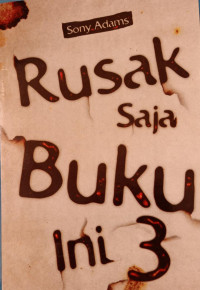 Sony Adams
Rusak
Saja
Buku
Ini 3